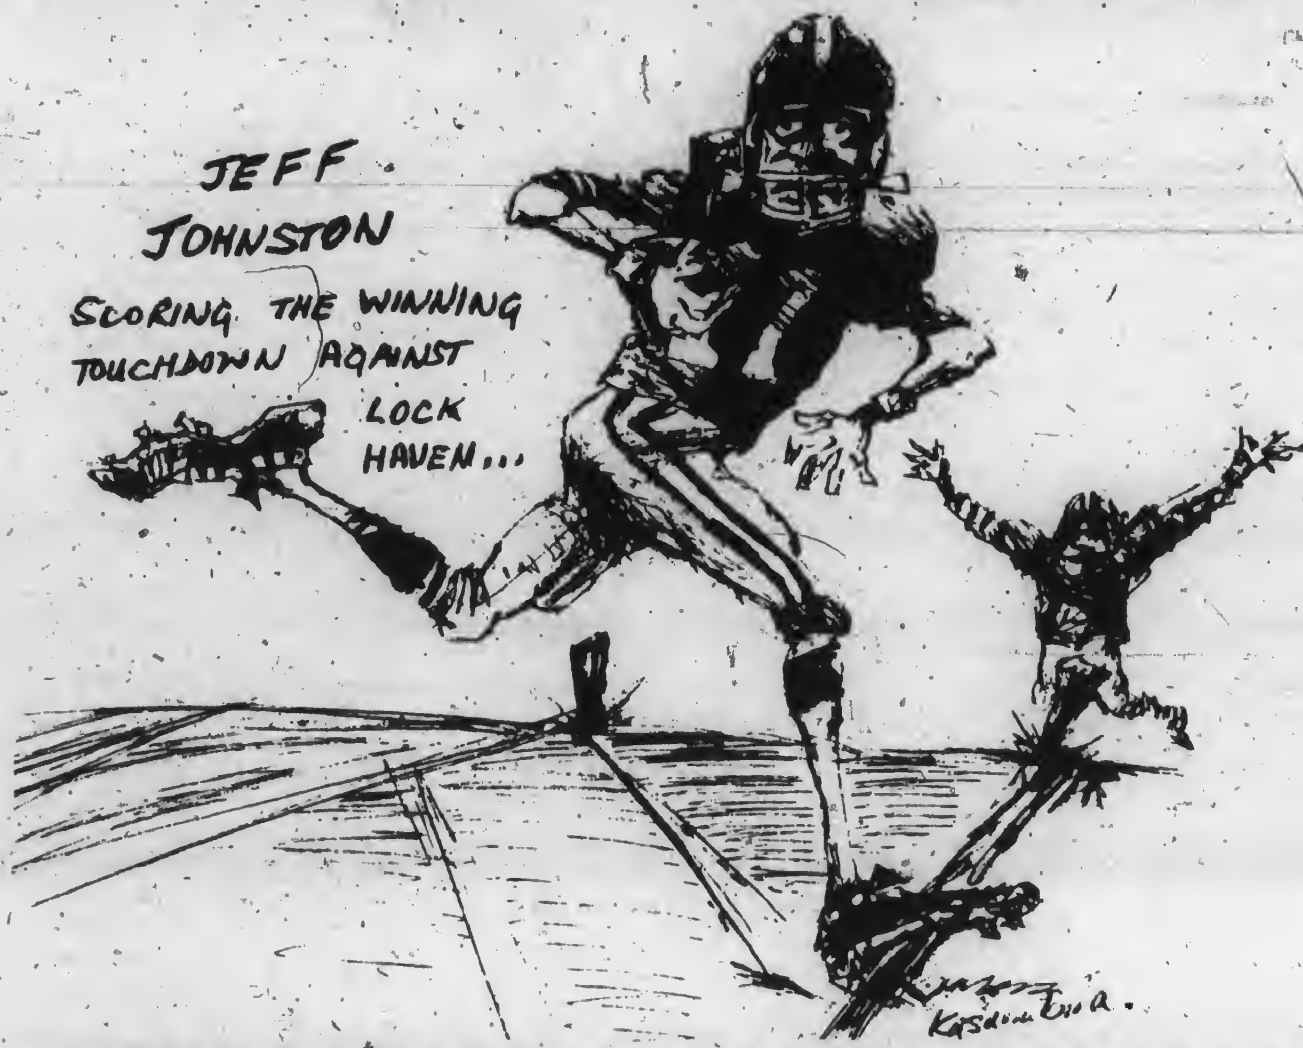 JEFF
JOHNSTON
SCORING THE WINNING
TOUCHDOWN AGAINST
LOCK
HAVEN...